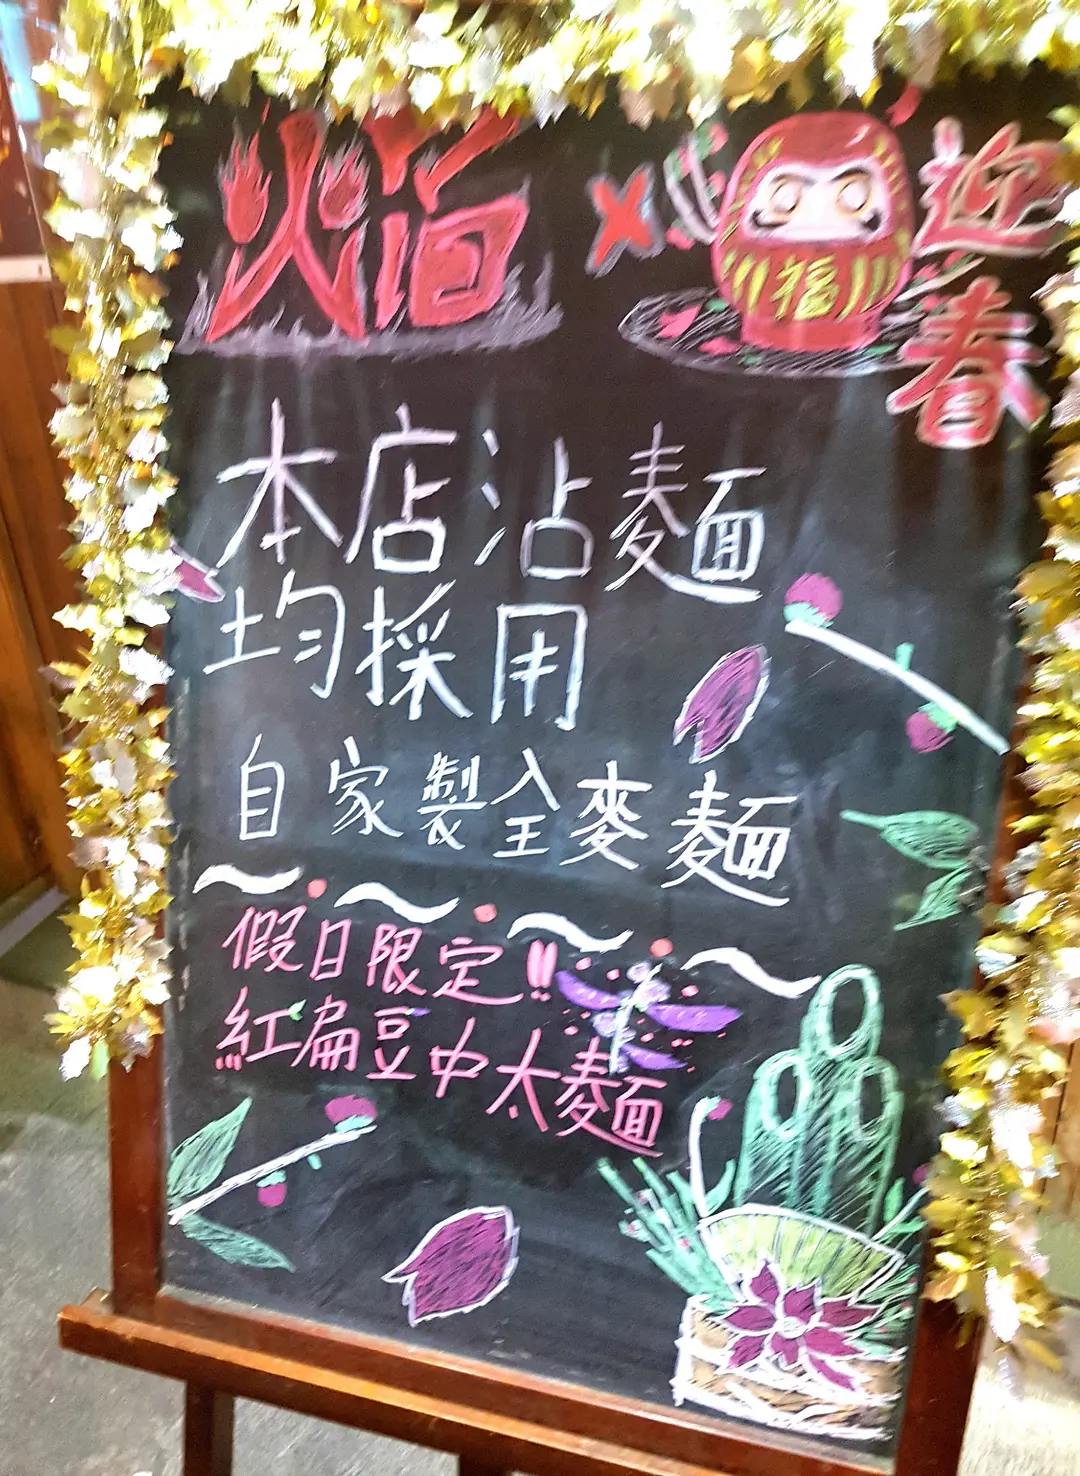 X 福 迎春
本店沾麵
均採用
自家製全麥麵
假日限定!!
紅扁豆中太麵